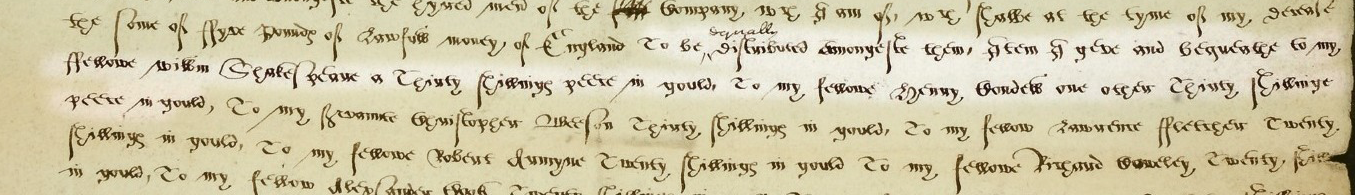 the hyred men of the Company, wch I am of, wch shalbe at the tyme of my decease
the some of ffyve Pounds of Lawfull money, of England To be equally distributed amongeste them, Item I geve and bequeathe to my,
ffellowe Willm Shakespeare a Thirty shillings peece in gould, To my fellowe Henry, Condell one other Thirty, shillinge
peece in gould, To my servaunte Christopher Beeston Thirty, shillings in gould, To my fellow Lawrence ffletcher Twenty,
shillings in gould, To my fellowe Robert Armyne Twenty, shillings in gould To my, fellowe Richard Coweley, Twenty, shill
in gould, To my fellow Alexsander Cook Twenty shillings in gould